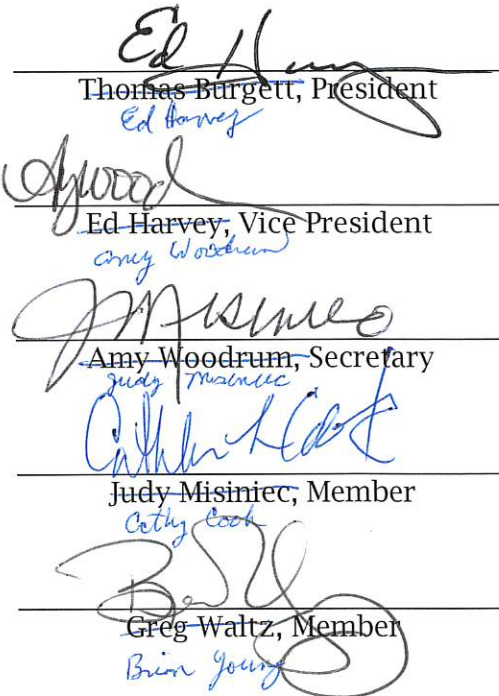 Ed Harvey
Thomas Burgett, President
Ed Harvey
Aywood
Ed Harvey, Vice President
Amy Woodrum
J Misiniec
Amy Woodrum, Secretary
Judy Misiniec
Cathleen L Cook
Judy Misiniec, Member
Cathy Cook
Greg Waltz, Member
Brian Young